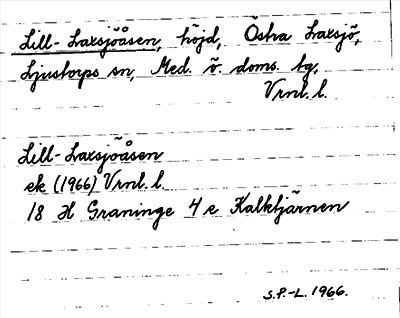 Lill-Laxsjöåsen, höjd, Östra Laxsjö,
Ljustorps sn, Med. ö. doms. tg,
Vrnl. l.
Lill-Laxsjöåsen
ek (1966) Vrnl. l.
18 H Graninge 4 e Kalktjärnen
S.P.-L. 1966.